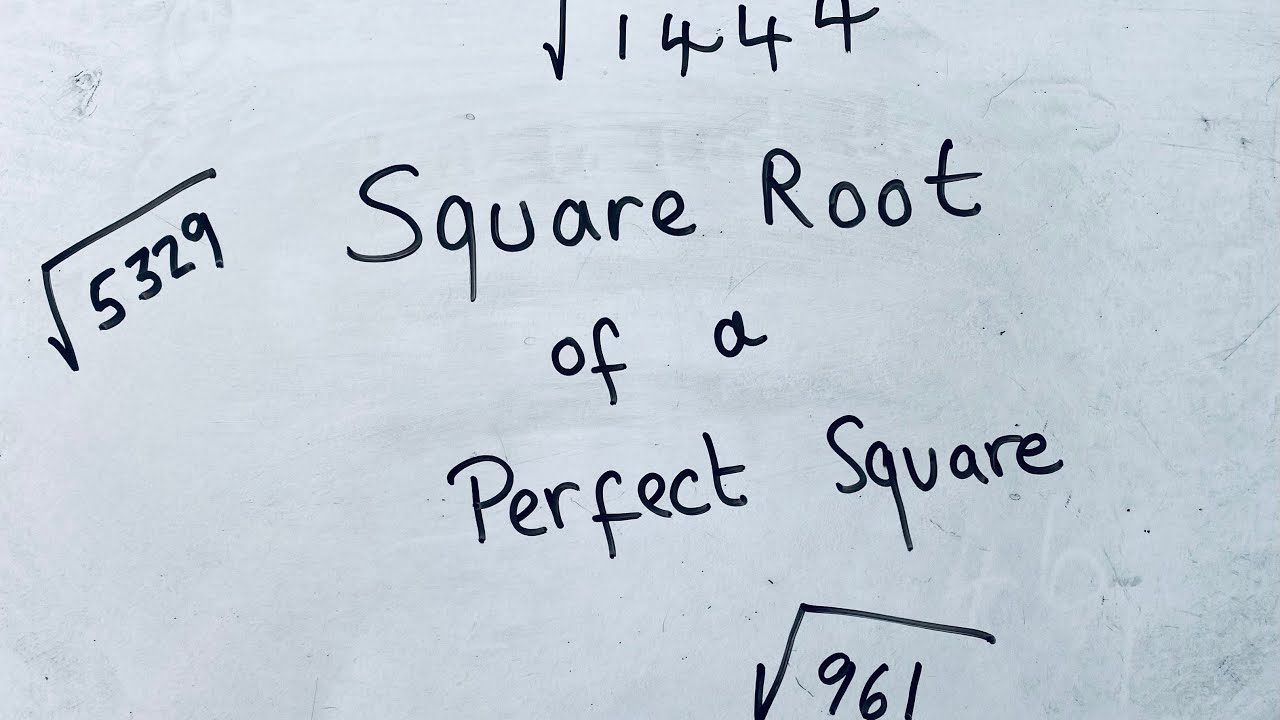 √1444
√5329
Square Root
of a
Perfect Square
√961